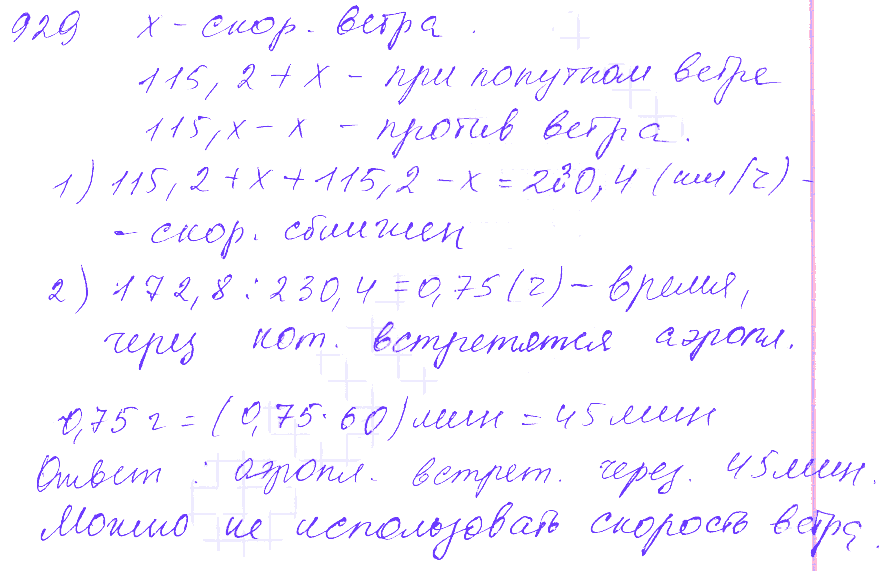 929 х - скор. ветра.
115,2 + х - при попутном ветре
115,х - х - против ветра.
1) 115,2 + х + 115,2 - х = 230,4 (км/ч) -
- скор. сближен
2) 172,8 : 230,4 = 0,75 (ч) - время,
через кот. встретятся аэропл.
0,75 г = (0,75 · 60) мин = 45 мин
Ответ : аэропл. встрет. через. 45 мин.
Можно не использовать скорость ветра.